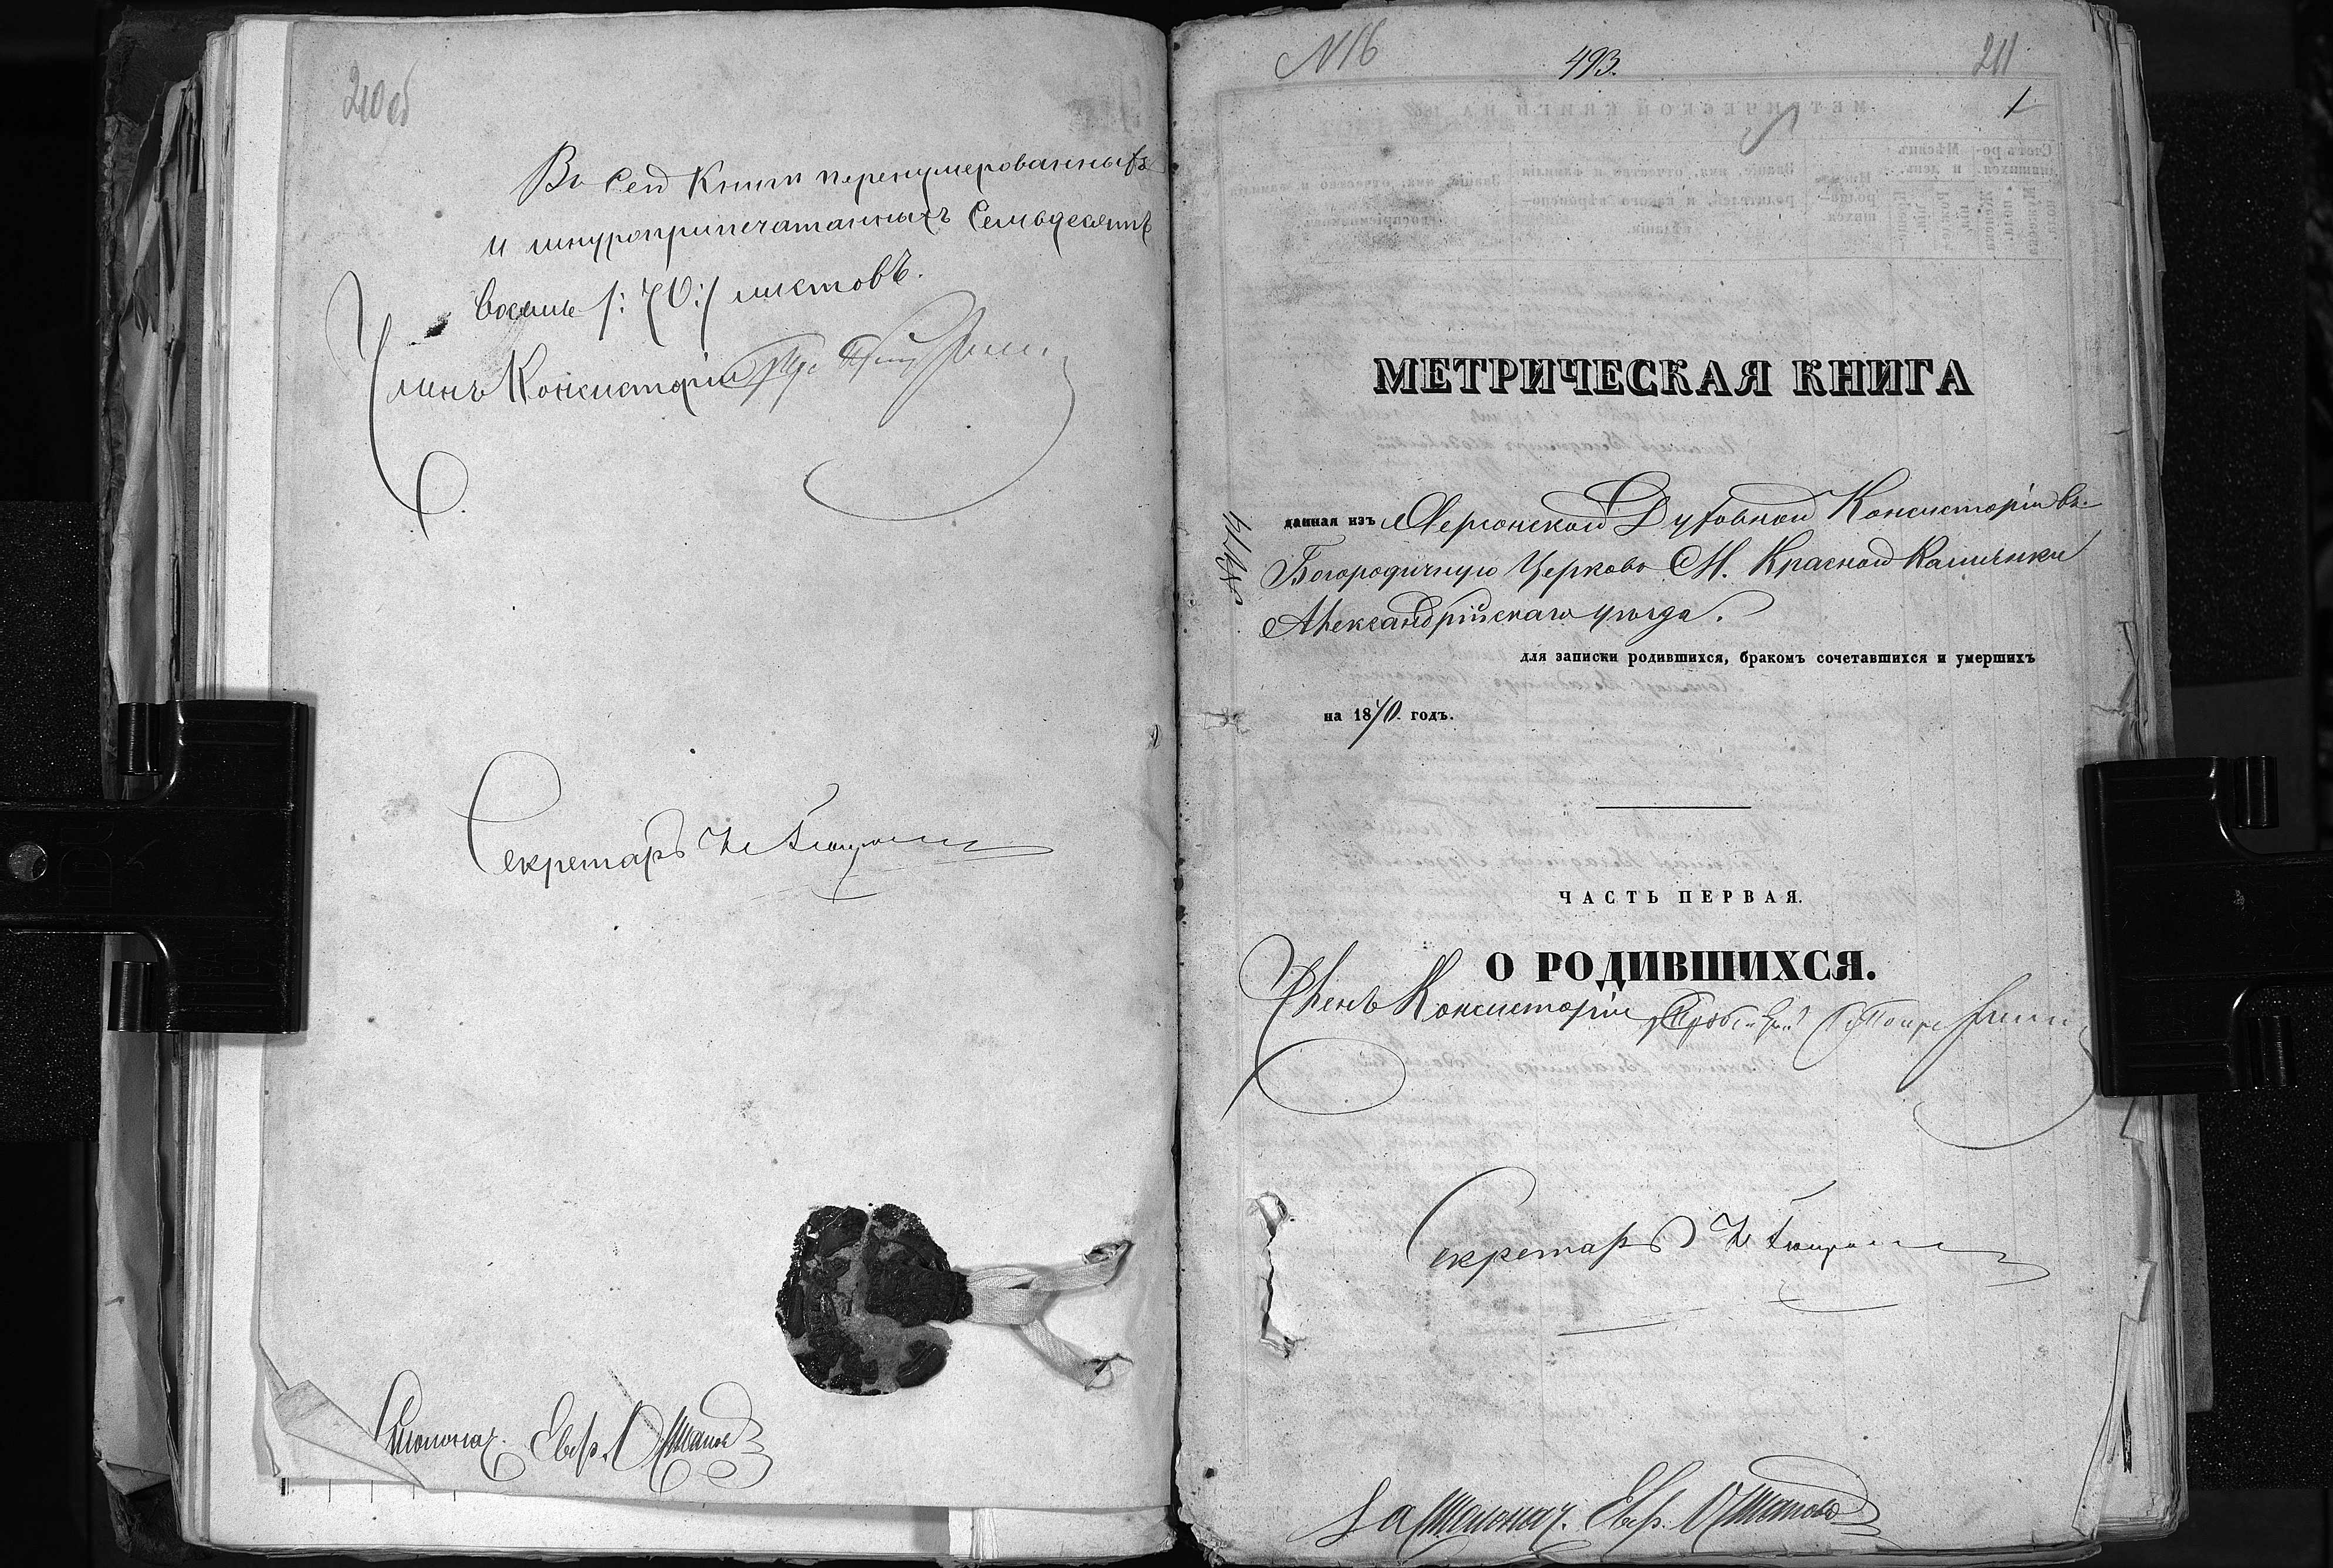 210об
Въ сей книги перенумерованныхъ
и шнуроприпечатанныхъ Семьдесятъ
восемь /:70:/ листовъ.
Членъ Консисторіи
Секретарь
Столонач. Евр.
N16
493.
211
1
МЕТРИЧЕСКАЯ КНИГА
данная изъ Херсонской Духовной Консисторіи въ
Богородичную Церковь М. Красной Каменки
Александрійскаго уѣзда.
для записки родившихся, бракомъ сочетавшихся и умершихъ
на 1870. годъ.
ЧАСТЬ ПЕРВАЯ.
О РОДИВШИХСЯ.
Членъ Консисторіи
Секретарь
За Столонач. Евр.